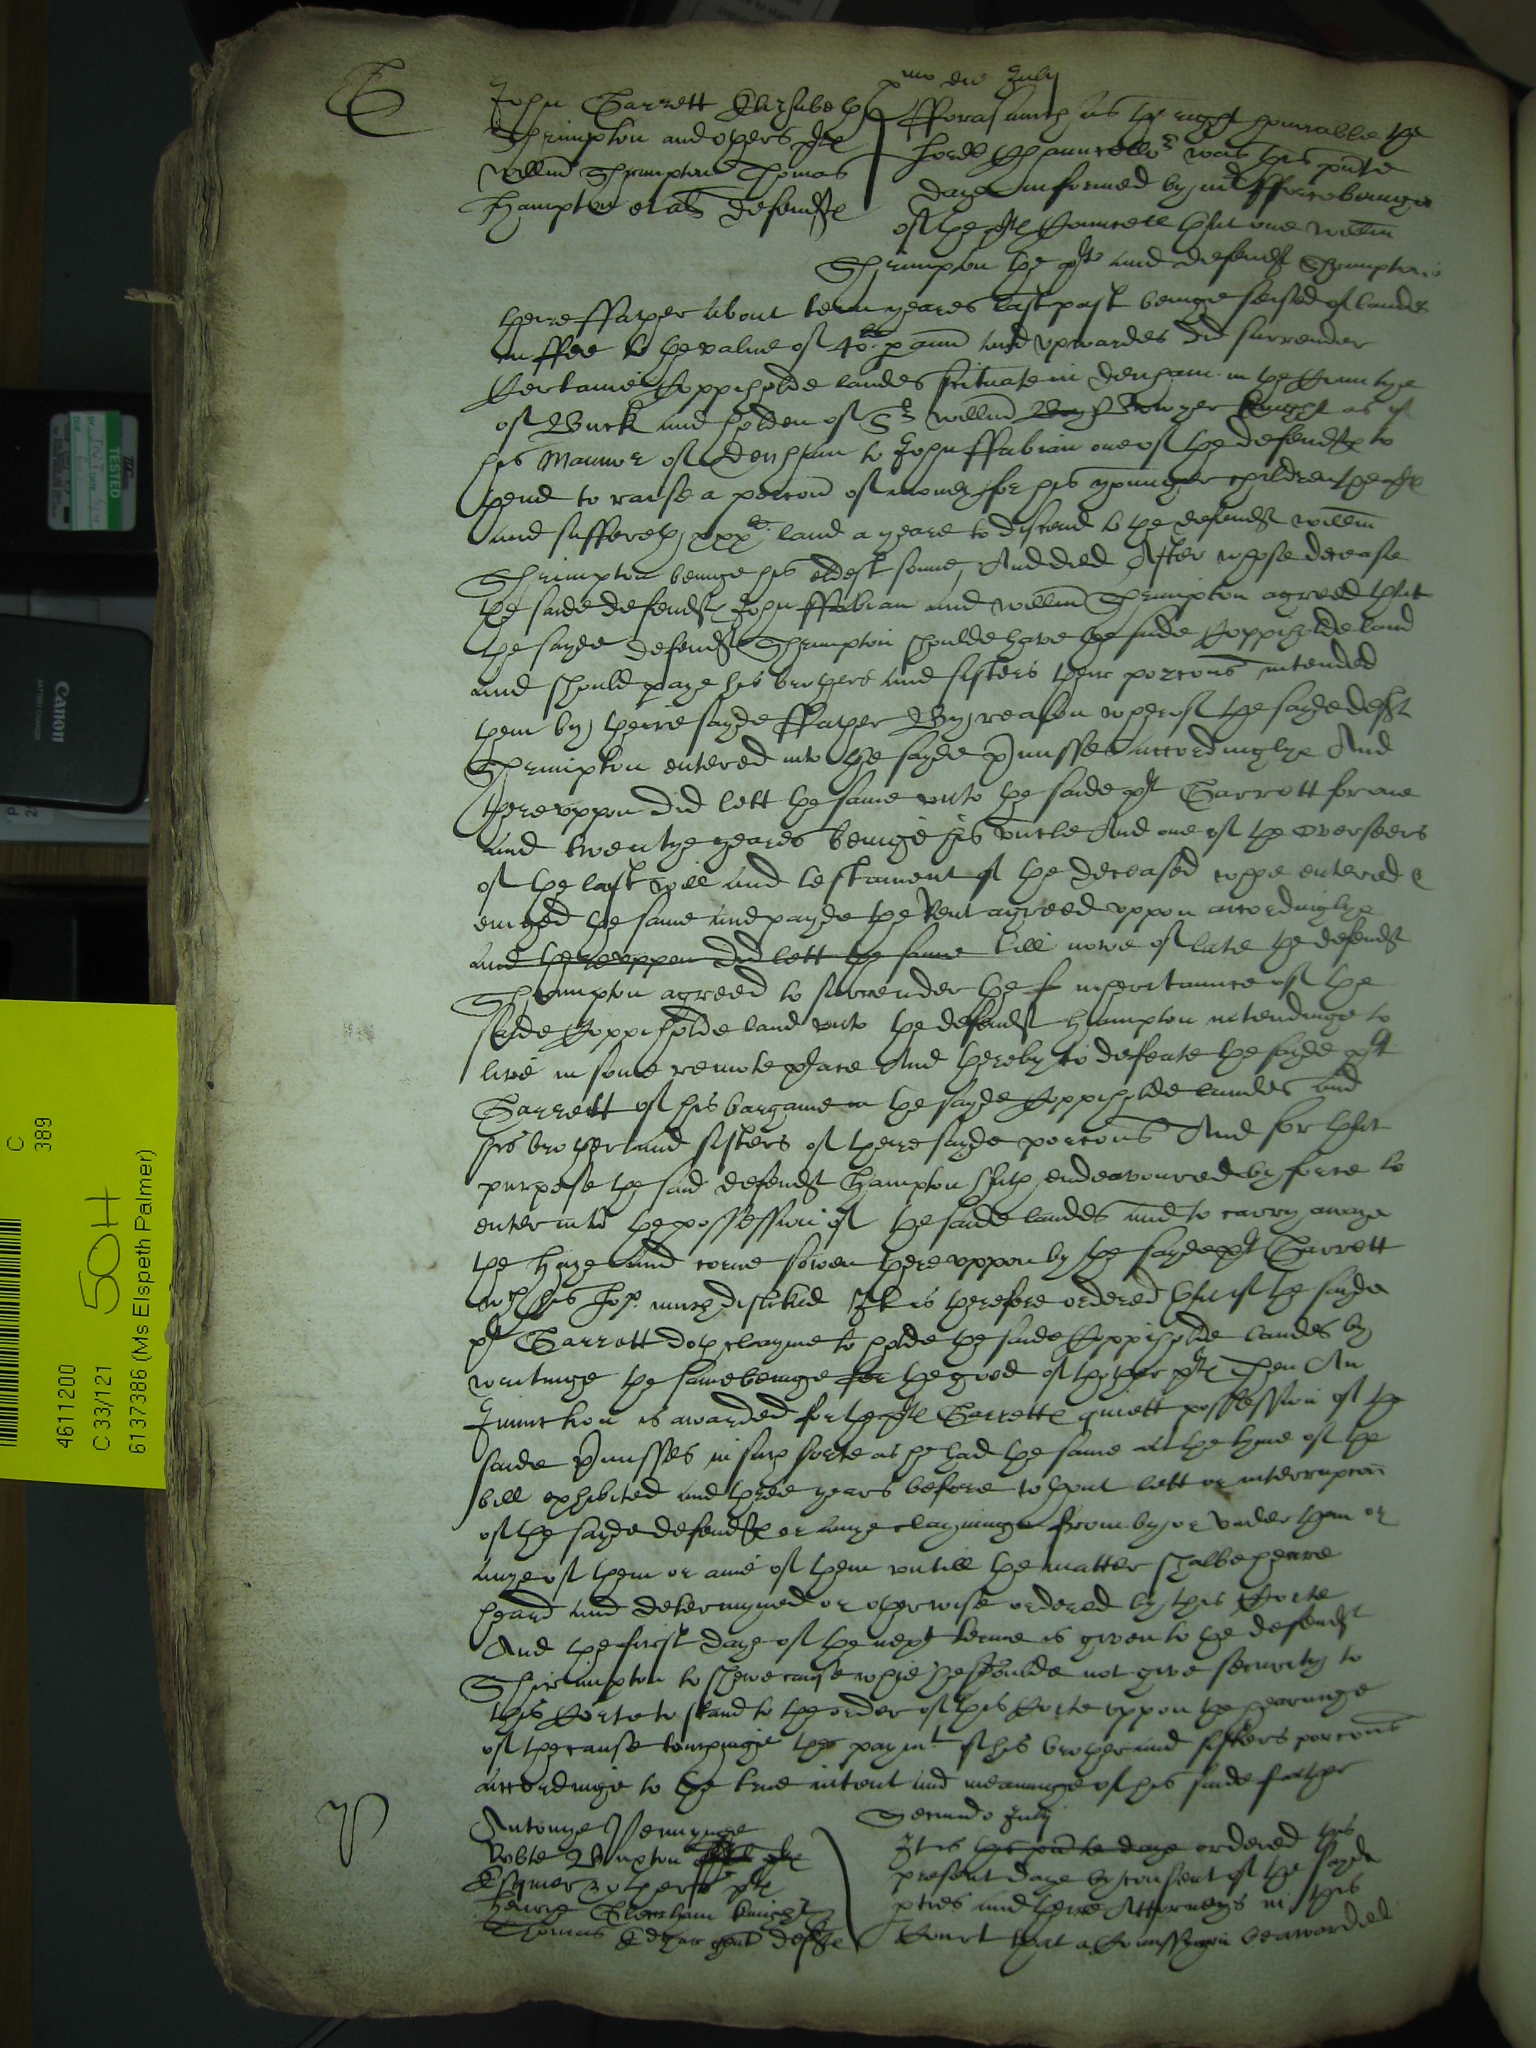 primo die July
John Garrett Elizabeth
Shrimpton and others plts
Willm Shrimpton Thomas
Hampton et als defendtes
Fforasmuch as the right honorable the
Lorde Chauncellor was this pnte
daye informed by mr
of the plts Councell that one Willm
Shrimpton the plts and defendt Shrimptons
theire ffather about tenn yeares last past beinge seised of landes
in ffee to the value of 40li p ann and upwardes did surrender
Certaine Coppiholde landes scituate in Denham in the Countye
of Buck and holden of Sr Willm Bowyer knight as of
his Mannor of Denham to John ffabian one of the defendtes to
thend to raise a porcon of money for his younger children the plts
and suffereth xxxli land a yeare to discend to the defendt Willm
Shrimpton beinge his eldest sonne, And died After whose decease
the saide defendtes John ffabian and Willm Shrimpton agreed that
the sayde defendt Shrimpton shoulde have the saide Coppiholde land
and should paye his brothers and sisters their porcons intended
them by theire sayde ffather By reason wherof the sayde deft
Shrimpton entered into the sayde pmisses accordinglye And
thereuppon did lett the same unto the saide plt Garrett for one
and twentye yeares beinge his unckle And one of the overseers
of the last will and testament of the deceased whoe entered &
enioyed the same and payde the Rent agreed uppon accordinglye
and thereuppon did lett the same till nowe of late the defendt
Shrimpton agreed to surrender the inheritaunce of the
saide Coppiholde land unto the defendt Hampton intendinge to
live in some remote place And thereby to defeate the sayde plt
Garrett of his bargaine in the sayde Coppiholde landes and
his brother and sisters of there sayde porcons And for that
purpose the said defendt Hampton hath endeavoured by force to
enter into the possession of the saide landes and to carry awaye
the haye and corne sowen thereuppon by the sayde plt Garrett
wch his Lop. much disliked It is therefore ordered that if the sayde
plt Garrett doth clayme to holde the saide Coppiholde landes by
writinge the same beinge for the good of thother plts Then An
Iniunction is awarded for the plts Garrettes quiett possession of the
saide pmisses in such sorte as he had the same at the tyme of the
bill exhibited and three years before wthout lett or interrupcon
of the sayde defendtes or anye clayminge from by or under them or
anye of them or anie of them untill the matter shalbe heare
heard and determyned or otherwise ordered by this Corte
And the first daye of the next terme is given to the defendt
Shrimpton to shewe cause whie he shoulde not give security to
this Corte to stand to the order of this Corte uppon the hearinge
of the cause touchinge the paymt of his brother and sisters porcons
accordinge to the true intent and meaninge of his saide father
Antonye
Robte Buxton plts
Esquier & others plts
Henrie Gresham knight
Thomas Edgar gent defts
Secundo July
It is the pnte daye ordered this
present daye by consent of the sayde
pties and there Attorneys in this
Court that a Comission be awarded
TESTED
Canon
BATTERY CHARGER
C
389
50H
4611200
C 33/121
6137386 (Ms Elspeth Palmer)